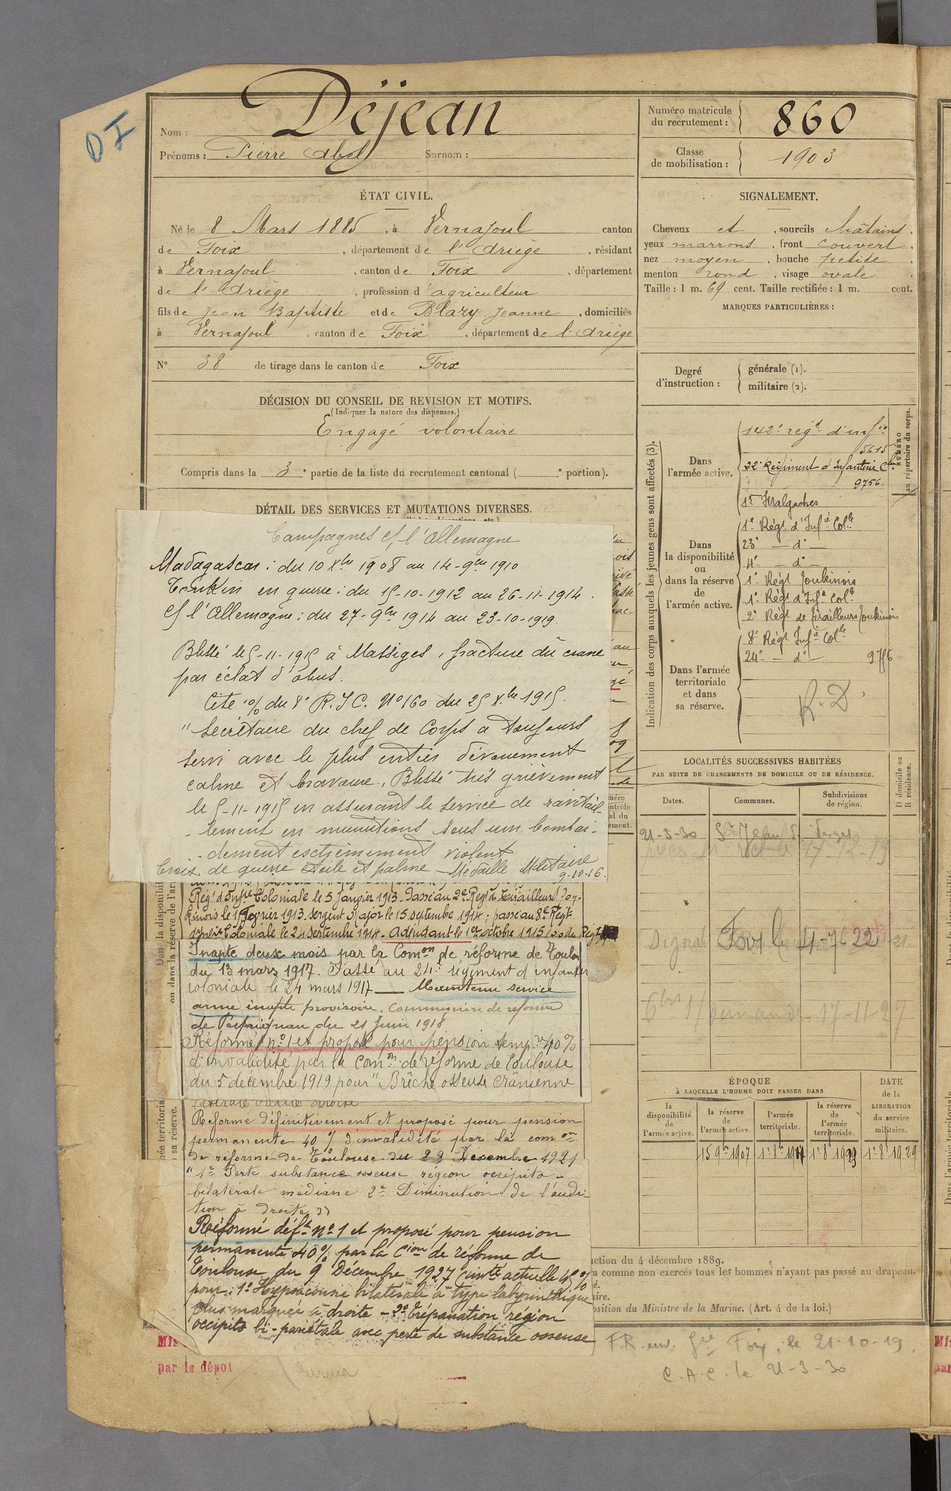 DI
Nom : Déjean
Prénoms : Pierre Abel Surnom :
Numéro matricule du recrutement : 860
Classe de mobilisation : 1903
ÉTAT CIVIL.
Né le 8 Mars 1885, à Vernajoul canton
de Foix, département de l'Ariège, résidant
à Vernajoul, canton de Foix, département
de l'Ariège, profession d'agriculteur
fils de Jean Baptiste et de Blazy Jeanne, domiciliés
à Vernajoul, canton de Foix, département de l'Ariège
N° 38 de tirage dans le canton de Foix
DÉCISION DU CONSEIL DE REVISION ET MOTIFS.
(Indiquer la nature des dispenses.)
Engagé volontaire
Compris dans la 3e partie de la liste du recrutement cantonal ( e portion).
DÉTAIL DES SERVICES ET MUTATIONS DIVERSES.
Campagnes c/ l'Allemagne
Madagascar : du 10 Xbre 1908 au 14-9bre 1910
Tonkin en guerre : du 15-10-1912 au 26-11-1914.
c/ l'Allemagne : du 27-9bre 1914 au 23-10-1919.
Blessé le 5-11-1915 à Massiges, fracture du crane
par éclat d'obus.
Cité % du 8e R.I.C. N°160 du 25 Xbre 1915
"Secrétaire du chef de Corps a toujours
servi avec le plus entier dévouement
calme et bravoure. Blessé très grièvement
le 5-11-1915 en assurant le service de ravitail-
-lement en munitions sous un bombar-
-dement extrêmement violent
Croix de guerre étoile et palme - Médaille Militaire
9-10-16.
Régt d'Infrie Coloniale le 5 janvier 1913. Passé au 2e Régt de Tirailleurs Ton-
kinois le 1er février 1913. Sergent Major le 15 septembre 1914 ; passé au 8e Régt
d'Infrie Coloniale le 21 septembre 1914. Adjudant le 1er octobre 1915
Inapte deux mois par la Comon de réforme de Toulon
du 13 mars 1917. Passé au 24e régiment d'infanterie
coloniale le 24 mars 1917 — Maintenu service
armé inapte provisoire. Commission de réforme
de Perpignan du 21 Juin 1918
Réformé n°1 et proposé pour pension temp. 40%
d'invalidité par la Comon de réforme de Toulouse
du 5 decembre 1919 pour "Brèche osseuse crânienne
Réforme définitivement et proposé pour pension
permanente 40% d'invalidité par la comon
de réforme de Toulouse du 23 Decembre 1921
"1° Perte substance osseuse région occipito-
bilatérale médiane 2° Diminution de l'audi-
tion à droite"
Réformé déft n°1 et proposé pour pension
permanente 40% par la Cion de réforme de
Toulouse du 9 Décembre 1927 (invté actuelle 45%)
pour : 1° Hypoacousie bilatérale à type labyrinthique
plus marquée à droite - 2° trépanation région
occipito bi-pariétale avec perte de substance osseuse
par le dépôt
SIGNALEMENT.
Cheveux et, sourcils châtains,
yeux marrons, front couvert,
nez moyen, bouche petite,
menton rond, visage ovale
Taille : 1 m. 69 cent. Taille rectifiée : 1 m. cent.
MARQUES PARTICULIÈRES :
Degré d'instruction :
générale (1).
militaire (2).
Indication des corps auxquels les jeunes gens sont affectés (3).
NUMÉRO au répertoire du corps.
Dans l'armée active.
142e régt d'infie
5615
22e Régiment d'Infanterie Cle
9756
1er Malgaches
Dans la disponibilité ou dans la réserve de l'armée active.
1er Régt d'Infie Colle
23e — d° —
4e — d° —
1er Régt Tonkinois
1er Régt d'Infie Colle
2e Régt de Tirailleurs Tonkinois
8e Régt Infie Colle
24e — d° — 9786
Dans l'armée territoriale et dans sa réserve.
R.D
LOCALITÉS SUCCESSIVES HABITÉES
PAR SUITE DE CHANGEMENTS DE DOMICILE OU DE RÉSIDENCE.
Dates. Communes. Subdivisions de région. D domicile ou R résidence.
21-3-30 St Jean de Verges
Foix le 4-7-22
ÉPOQUE
À LAQUELLE L'HOMME DOIT PASSER DANS
DATE de la LIBÉRATION du service militaire.
la disponibilité de l'armée active.
la réserve de l'armée active.
l'armée territoriale.
la réserve de l'armée territoriale.
15 9bre 1907
1er 8bre 1929
ction du 4 décembre 1889.
comme non exercés tous les hommes n'ayant pas passé au drapeau.
position du Ministre de la Marine. (Art. 4 de la loi.)
F.R. env. Gie Foix, le 21-10-19
C.A.C. le 21-3-30